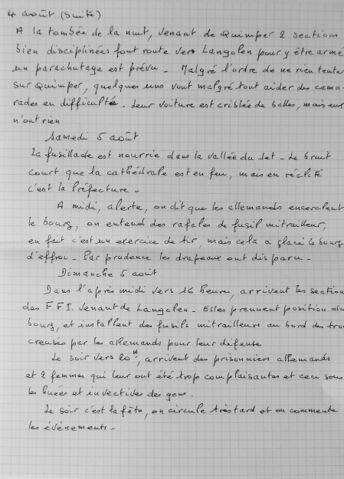 4 août (suite)
A la tombée de la nuit, venant de Quimper 2 sections
bien disciplinées font route vers Langolen pour y être armé
un parachutage est prévu. Malgré l'ordre de ne rien tenter
sur Quimper, quelques uns vont malgré tout aider des cama-
rades en difficulté. Leur voiture est criblée de balles, mais eux
n'ont rien
Samedi 5 août
La fusillade est nourrie dans la vallée du Jet - Le bruit
court que la cathédrale est en feu, mais en réalité
c'est la Préfecture -
A midi, alerte, on dit que les allemands encerclent
le bourg, on entend des rafales de fusil mitrailleur,
en fait c'est un exercice de tir, mais cela a glacé le bourg
d'effroi - Par prudence les drapeaux ont disparu -
Dimanche 6 août
Dans l'après midi vers 16 heure, arrivent les section
des F.F.I. venant de Langolen - Elles prennent position au
bourg, et installent des fusils mitrailleurs au bord des trous
creusés par les allemands pour leur défense
Le soir vers 20H, arrivent des prisonniers allemands
et 2 femmes qui leur ont été trop complaisantes et ceci sous
les huées et invectives des gens.
Le soir c'est la fête, on circule très tard et on commente
les évènements -